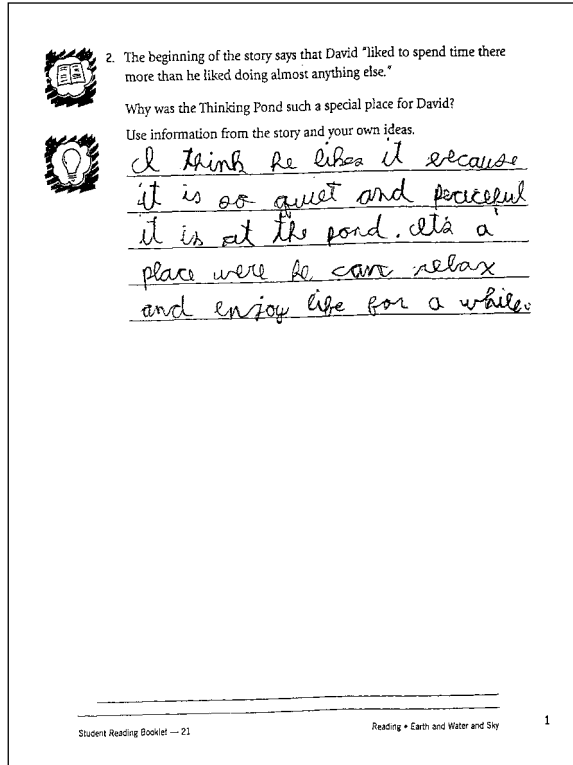 2. The beginning of the story says that David "liked to spend time there
more than he liked doing almost anything else."
Why was the Thinking Pond such a special place for David?
Use information from the story and your own ideas.
I think he likes it because
it is so quiet and peaceful
it is at the pond. It's a
place were he can relax
and enjoy life for a while.
Student Reading Booklet — 21
Reading • Earth and Water and Sky
1